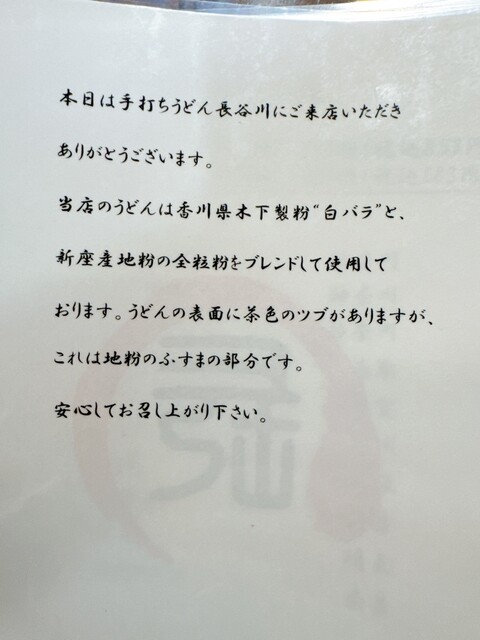 本日は手打ちうどん長谷川にご来店いただき
ありがとうございます。
当店のうどんは香川県木下製粉“白バラ”と、
新座産地粉の全粒粉をブレンドして使用して
おります。うどんの表面に茶色のツブがありますが、
これは地粉のふすまの部分です。
安心してお召し上がり下さい。